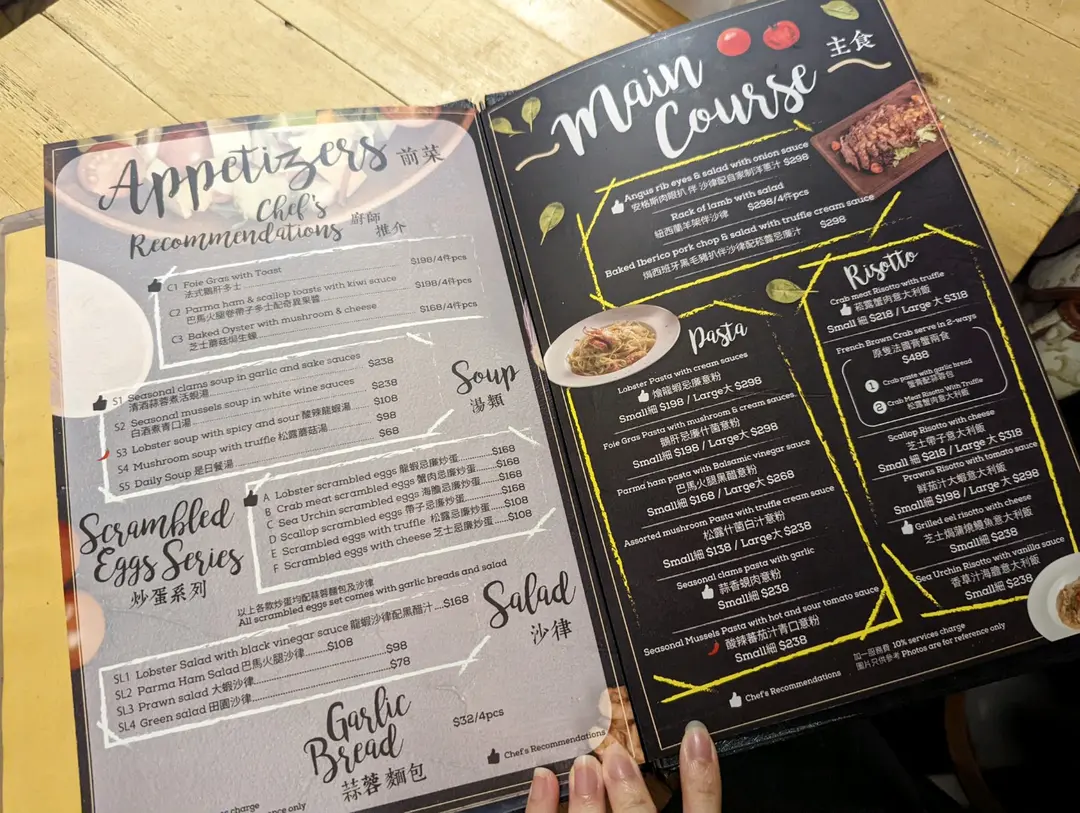 Appetizers 前菜
Chef's
Recommendations 廚師
推介
C1 Foie Gras with Toast $198/4件pcs
法式鵝肝多士
C2 Parma ham & scallop toasts with kiwi sauce $198/4件pcs
巴馬火腿帶子多士配奇異果醬
C3 Baked Oyster with mushroom & cheese $168/4件pcs
芝士蘑菇焗生蠔
Soup
湯類
S1 Seasonal clams soup in garlic and sake sauces $238
清酒蒜蓉煮活蜆湯
S2 Seasonal mussels soup in white wine sauces $238
白酒煮青口湯
S3 Lobster soup with spicy and sour 酸辣龍蝦湯 $108
S4 Mushroom soup with truffle 松露蘑菇湯 $98
S5 Daily Soup 是日餐湯 $68
Scrambled
Eggs Series
炒蛋系列
A Lobster scrambled eggs 龍蝦忌廉炒蛋 $168
B Crab meat scrambled eggs 蟹肉忌廉炒蛋 $168
C Sea Urchin scrambled eggs 海膽忌廉炒蛋 $168
D Scallop scrambled eggs 帶子忌廉炒蛋 $168
E Scrambled eggs with truffle 松露忌廉炒蛋 $108
F Scrambled eggs with cheese 芝士忌廉炒蛋 $108
以上各款炒蛋均配蒜蓉麵包及沙律
All scrambled eggs set comes with garlic breads and salad
Salad
沙律
SL1 Lobster Salad with black vinegar sauce 龍蝦沙律配黑醋汁 $168
SL2 Parma Ham Salad 巴馬火腿沙律 $108
SL3 Prawn salad 大蝦沙律 $98
SL4 Green salad 田園沙律 $78
Garlic
Bread
蒜蓉 麵包
$32/4pcs
Chef's Recommendations
charge
only
Main
Course
主食
Angus rib eyes & salad with onion sauce
安格斯肉眼扒 伴 沙律配自家制洋蔥汁 $298
Rack of lamb with salad
紐西蘭羊架伴沙律 $298/4件pcs
Baked Iberico pork chop & salad with truffle cream sauce
焗西班牙黑毛豬扒伴沙律配菘露忌廉汁 $298
Pasta
Lobster Pasta with cream sauces
燴龍蝦忌廉意粉
Small細 $198 / Large大 $298
Foie Gras Pasta with mushroom & cream sauces.
鵝肝忌廉什菌意粉
Small細 $198 / Large大 $298
Parma ham pasta with Balsamic vinegar sauce
巴馬火腿黑醋意粉
Small細 $168 / Large大 $268
Assorted mushroom Pasta with truffle cream sauce
松露什菌白汁意粉
Small細 $138 / Large大 $238
Seasonal clams pasta with garlic
蒜香蜆肉意粉
Small細 $238
Seasonal Mussels Pasta with hot and sour tomato sauce
酸辣蕃茄汁青口意粉
Small細 $238
Risotto
Crab meat Risotto with truffle
菘露蟹肉意大利飯
Small 細 $218 / Large 大 $318
French Brown Crab serve in 2-ways
原隻法國膏蟹兩食
$488
1 Crab paste with garlic bread
蟹膏配蒜蓉包
2 Crab Meat Risotto With Truffle
松露蟹肉意大利飯
Scallop Risotto with cheese
芝士帶子意大利飯
Small 細 $218 / Large 大 $318
Prawns Risotto with tomato sauce
鮮茄汁大蝦意大利飯
Small細 $198 / Large大 $298
Grilled eel risotto with cheese
芝士焗蒲燒鰻魚意大利飯
Small細 $238
Sea Urchin Risotto with vanilla sauce
香草汁海膽意大利飯
Small細 $238
加一服務費 10% services charge
圖片只供參考 Photos are for reference only
Chef's Recommendations